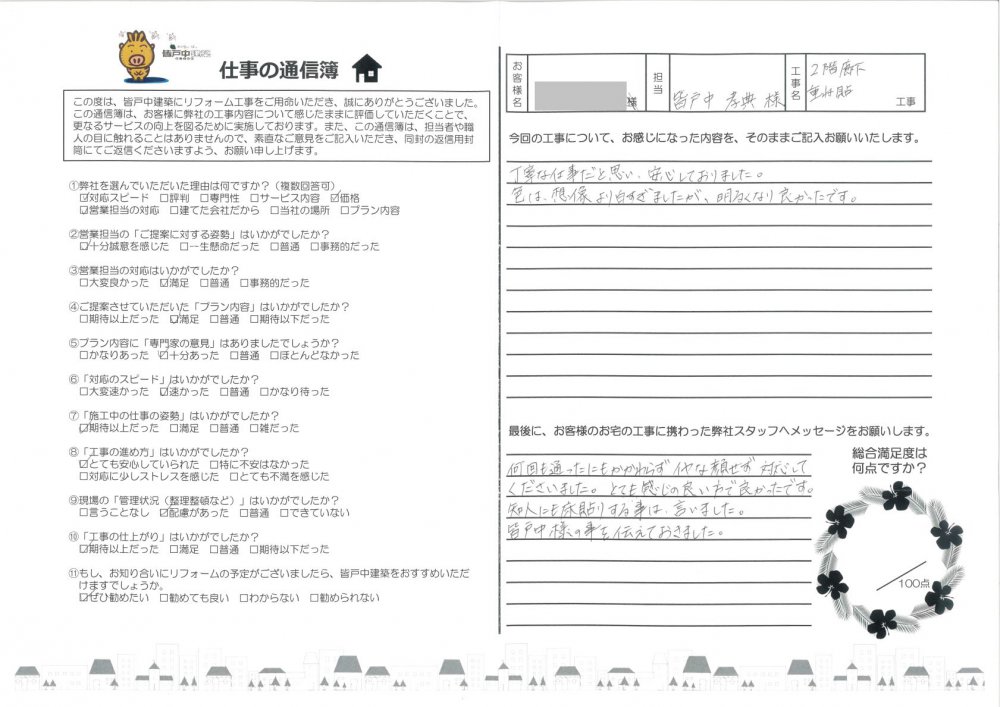 皆戸中建築
仕事の通信簿
この度は、皆戸中建築にリフォーム工事をご用命いただき、誠にありがとうございました。
この通信簿は、お客様に弊社の工事内容について感じたままに評価していただくことで、
更なるサービスの向上を図るために実施しております。また、この通信簿は、担当者や職人
の目に触れることはありませんので、素直なご意見をご記入いただき、同封の返信用封
筒にてご返信くださいますよう、お願い申し上げます。
①弊社を選んでいただいた理由は何ですか？（複数回答可）
☑対応スピード □評判 □専門性 □サービス内容 ☑価格
☑営業担当の対応 □建てた会社だから □当社の場所 □プラン内容
②営業担当の「ご提案に対する姿勢」はいかがでしたか？
☑十分誠意を感じた □一生懸命だった □普通 □事務的だった
③営業担当の対応はいかがでしたか？
□大変良かった ☑満足 □普通 □事務的だった
④ご提案させていただいた「プラン内容」はいかがでしたか？
□期待以上だった ☑満足 □普通 □期待以下だった
⑤プラン内容に「専門家の意見」はありましたでしょうか？
□かなりあった ☑十分あった □普通 □ほとんどなかった
⑥「対応のスピード」はいかがでしたか？
□大変速かった ☑速かった □普通 □かなり待った
⑦「施工中の仕事の姿勢」はいかがでしたか？
☑期待以上だった □満足 □普通 □雑だった
⑧「工事の進め方」はいかがでしたか？
☑とても安心していられた □特に不安はなかった
□対応に少しストレスを感じた □とても不満を感じた
⑨現場の「管理状況（整理整頓など）」はいかがでしたか？
□言うことなし ☑配慮があった □普通 □できていない
⑩「工事の仕上がり」はいかがでしたか？
☑期待以上だった □満足 □普通 □期待以下だった
⑪もし、お知り合いにリフォームの予定がございましたら、皆戸中建築をおすすめいただ
けますでしょうか。
☑ぜひ勧めたい □勧めても良い □わからない □勧められない
お客様名 様 担当 皆戸中 孝典 様 工事名 2階廊下
重ね貼 工事
今回の工事について、お感じになった内容を、そのままご記入お願いいたします。
丁寧な仕事だと思い、安心しておりました。
色は、想像より白すぎましたが、明るくなり良かったです。
最後に、お客様のお宅の工事に携わった弊社スタッフへメッセージをお願いします。
何回も通ったにもかかわらず イヤな顔せず 対応して
くださいました。とても感じの良い方で良かったです。
知人にも床貼りする事は、言いました。
皆戸中様の事を伝えておきました。
総合満足度は
何点ですか？
／100点